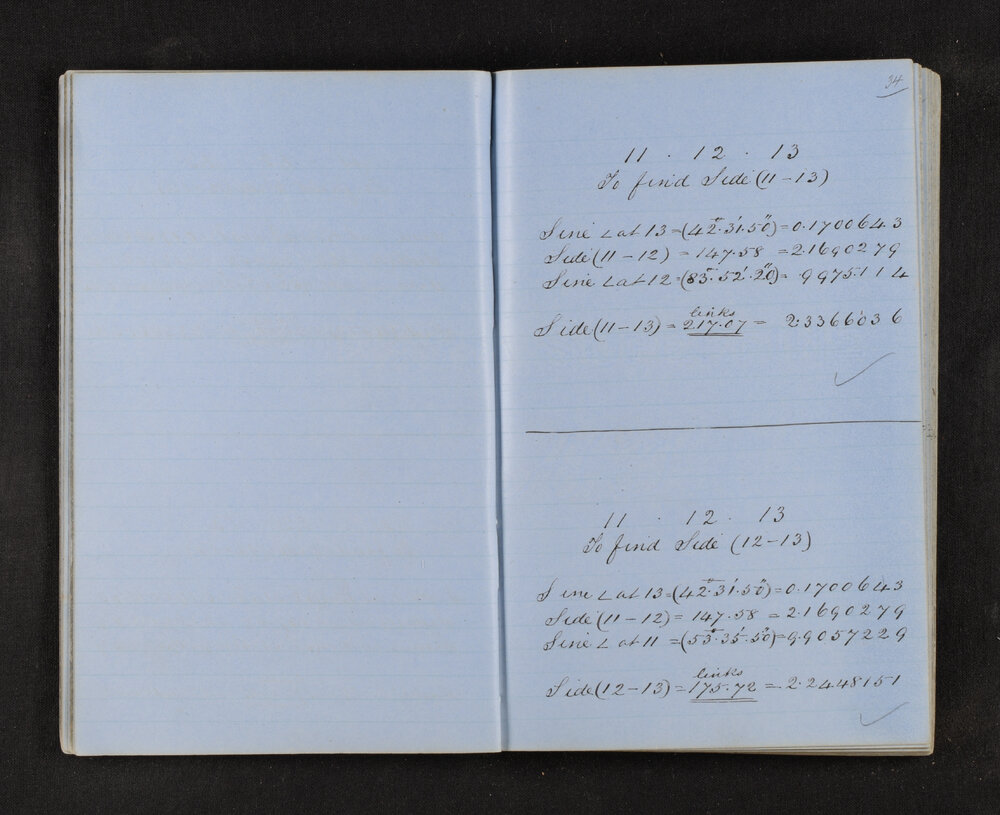 34
11 . 12 . 13
To find Side (11-13)
Sine ∠ at 13 = (42°.31'.50") = 0.1700643
Side (11-12) = 147.58 = 2.1690279
Sine ∠ at 12 = (83°.52'.20") = .9975114
links
Side (11-13) = 217.07 = 2.3366036
11 . 12 . 13
To find Side (12-13)
Sine ∠ at 13 = (42°.31'.50") = 0.1700643
Side (11-12) = 147.58 = 2.1690279
Sine ∠ at 11 = (53°.35'.50") = 9.9057229
links
Side (12-13) = 175.72 = 2.2448151